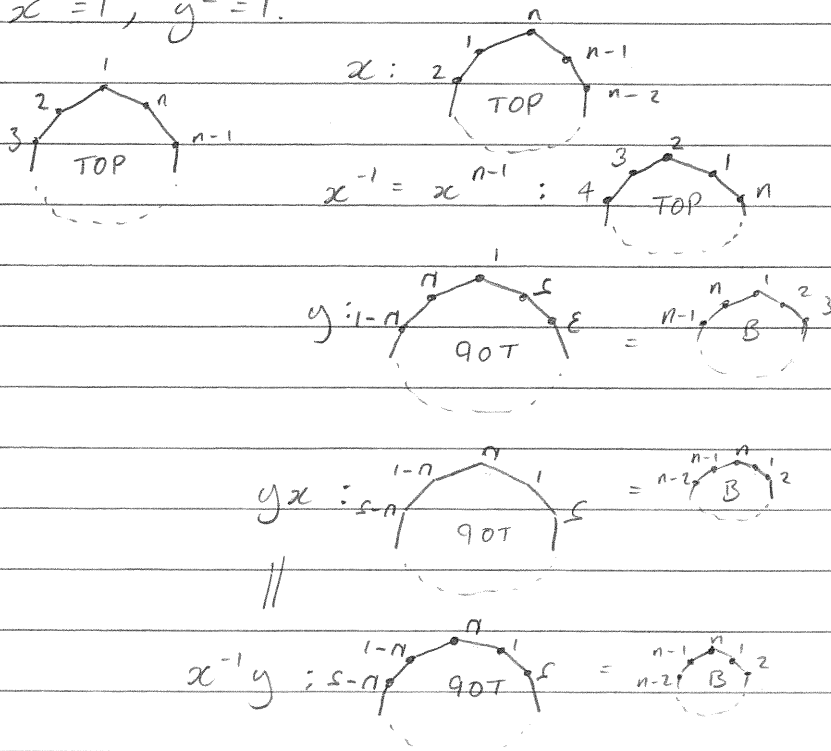 x =1, y =1.
1
2 n
3 n-1
TOP
x : n
1 n-1
2 n-2
TOP
x⁻¹ = xⁿ⁻¹ : 2
3 1
4 n
TOP
y : 1
n 2
n-1 3
TOP
= 1
n 2
n-1 3
B
yx : n
n-1 1
n-2 2
TOP
= n
n-1 1
n-2 2
B
//
x⁻¹y : n
n-1 1
n-2 2
TOP
= n
n-1 1
n-2 2
B